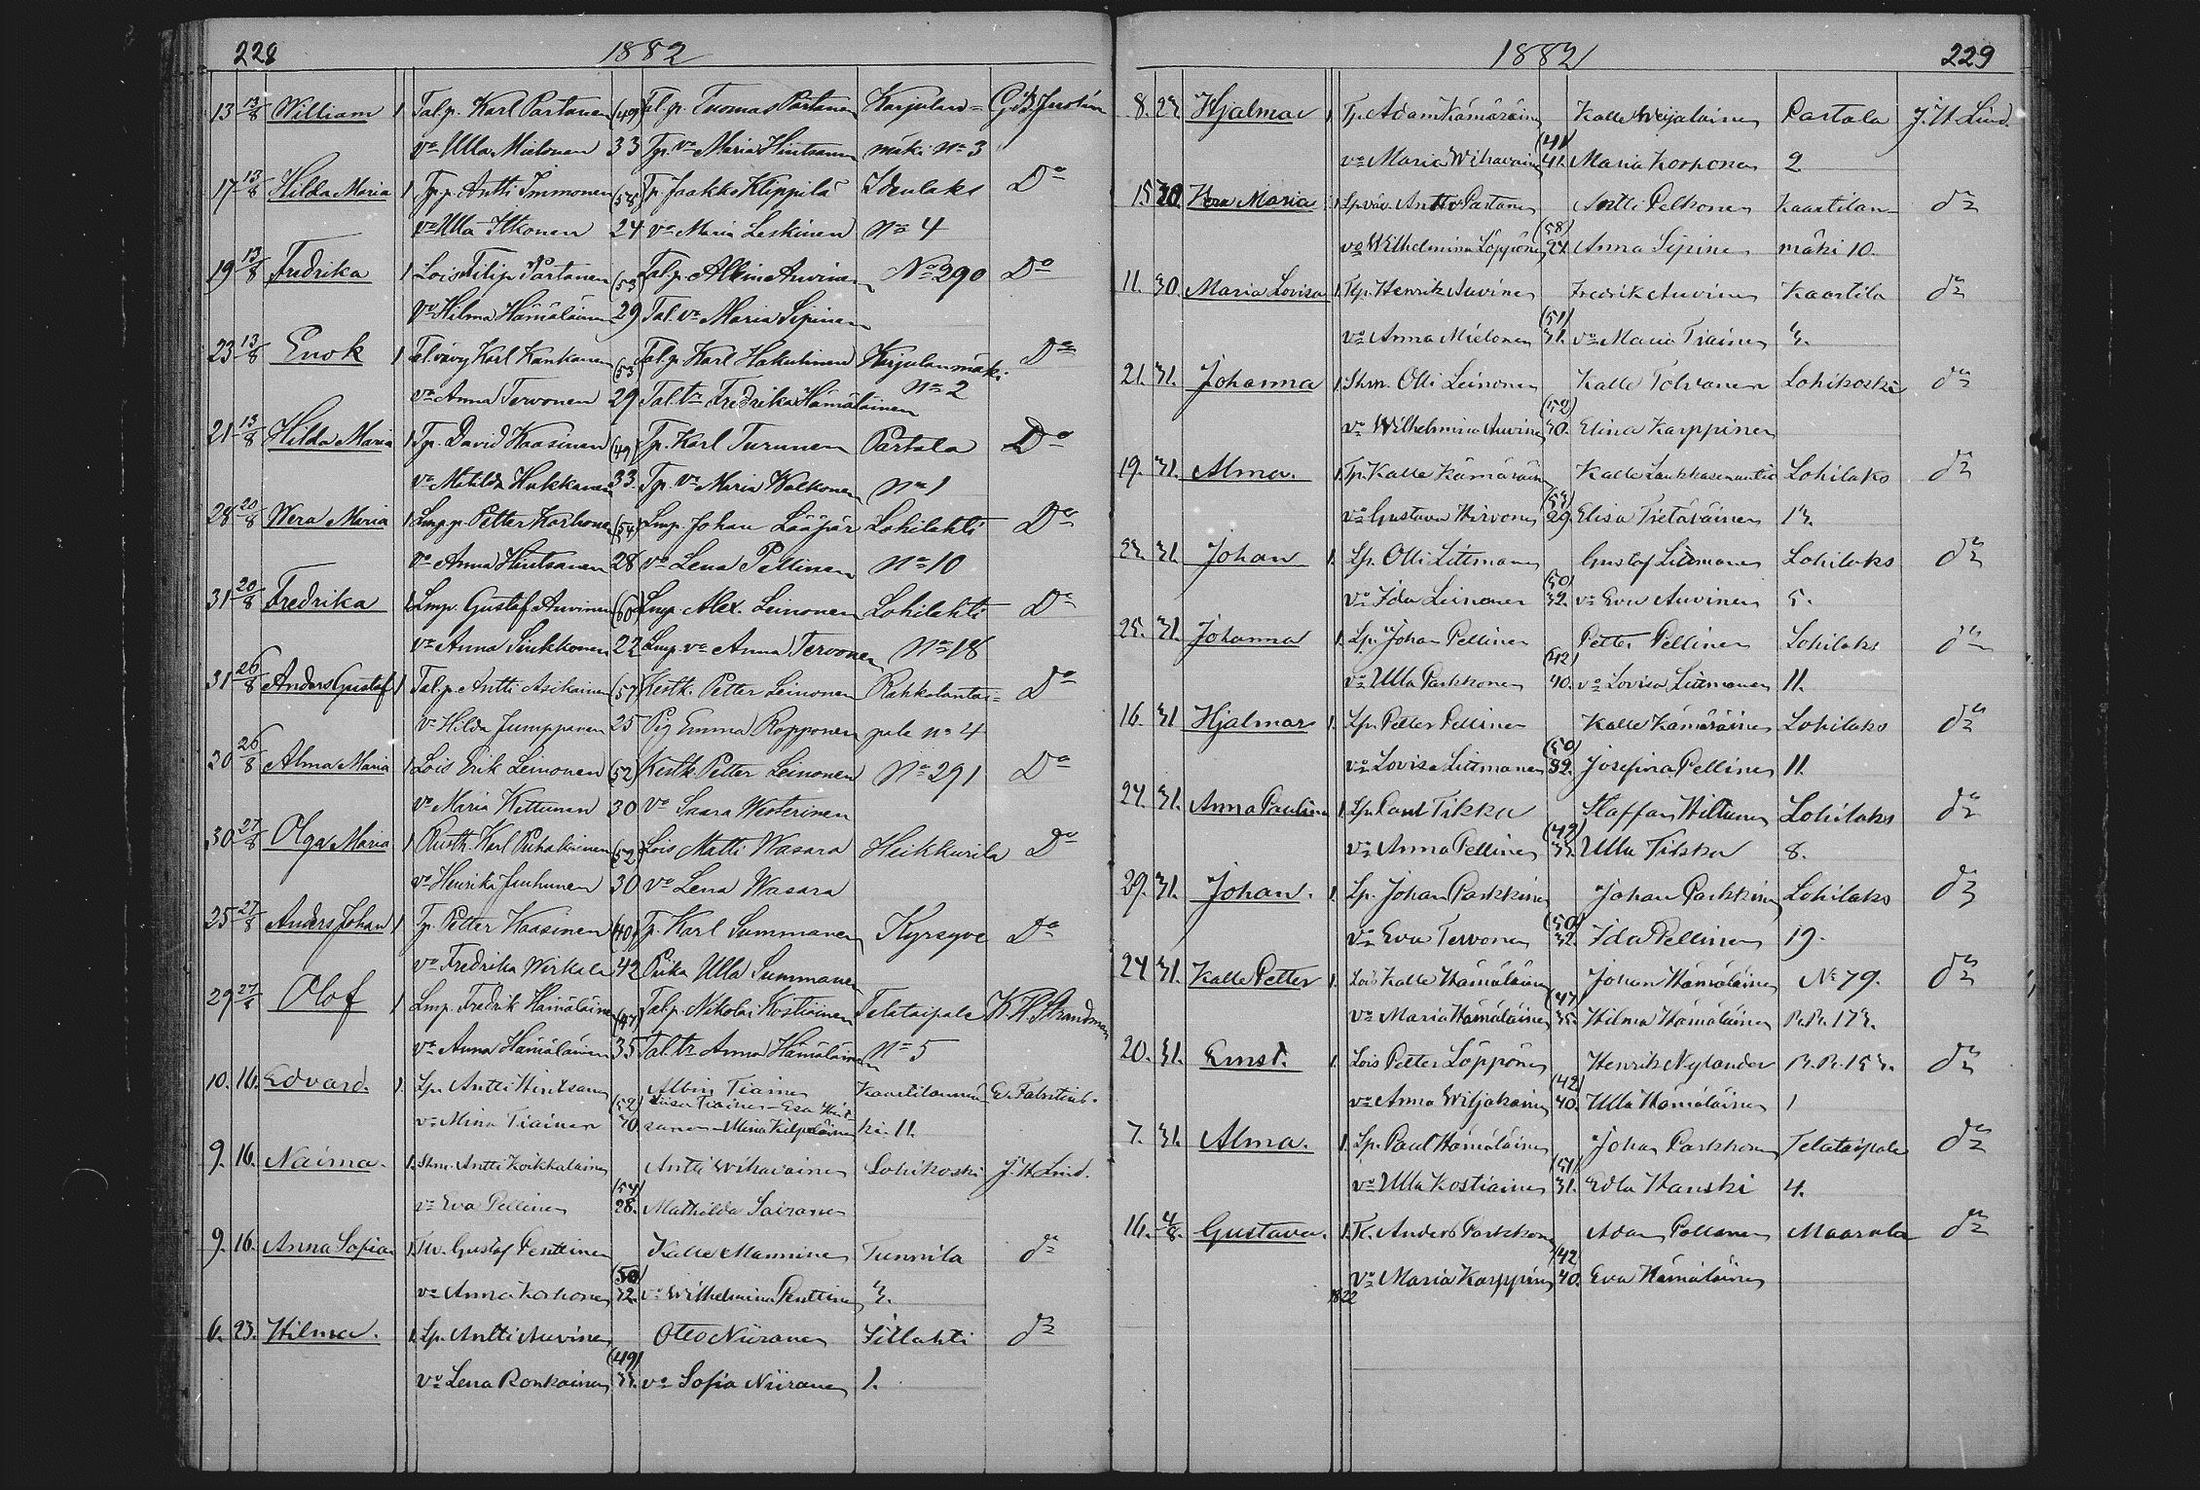 228 1882
13 13/8 William 1 Tal.p. Karl Partanen (49) Tal.p. Tuomas Partanen Karjulan=
vo Ulla Mielonen 33 Tp. vo Maria Hintsanen mäki No 3
17 13/8 Hilda Maria 1 Tp.p. Antti Immonen (58) Tp. Jaakko Kleppilä Idenlaks Do
vo Ulla Itkonen 24 vo Maria Leskinen No 4
19 13/8 Fredrika 1 Lois Filip Partanen (53) Tal.p. Albin Auvinen No 290 Do
vo Hilma Hämäläinen 29 Tal. vo Maria Sipinen
23 13/8 Enok 1 Tal.vävy Karl Kankanen (53) Tal.p. Karl Hakulinen Karjulanmäki Do
vo Anna Tervonen 29 Tal.tr Fredrika Hämäläinen No 2
21 13/8 Hilda Maria 1 Tp. David Kaasinen (49) Tp. Karl Turunen Partala Do
vo Matilda Hukkanen 33. Tp. vo Maria Walkonen No 1
28 20/8 Wera Maria 1 Lmp.p. Petter Karhonen (54) Lmp. Johan Lääpär Lohilahti Do
vo Anna Hintsanen 28 vo Lena Pellinen No 10
31 20/8 Fredrika 1 Lmp. Gustaf Auvinen (60) Lmp. Alex. Leinonen Lohilahti Do
vo Anna Sinkkonen 22 Lmp. vo Anna Tervonen No 18
31 26/8 Anders Gustaf 1 Tal.p. Antti Asikainen (57) Kestk. Petter Leinonen Rahkolantai= Do
vo Hilda Jumppanen 25 Pig Emma Ropponen pale No 4
30 26/8 Alma Maria 1 Lois Erik Leinonen (52) Kestk. Petter Leinonen No 291 Do
vo Maria Kettunen 30 vo Saara Westerinen
30 27/8 Olga Maria 1 Rusth. Karl Puhakainen (52) Lois Matti Wasara Heikkurila Do
vo Henrika Jauhunen 30 vo Lena Wasara
25 27/8 Anders Johan 1 Tp. Petter Kaasinen (40) Tp. Karl Summanen Kyrsyve Do
vo Fredrika Wirkala 42 Piika Ulla Summanen
29 27/8 Olof 1 Lmp. Fredrik Hämäläinen (47) Tal.p. Nikolai Kostiainen Telataipale K. R. Strandman
vo Anna Hämäläinen 35 Tal.tr Anna Hämäläinen No 5
10. 16. Edvard. 1. Lp. Antti Hintsanen Albin Tiainen Kaartilanmä
(52) Liisa Tiainen - Esa Hint
vo Mina Tiainen 30 sanen - Mina Kilpeläinen ki. 11.
9. 16. Naima. 1. Antti Koikkalainen Antti Wihavainen Lohikoski J. H. Lind.
vo Eva Pellinen (54) 28. Mathilda Sairanen
9. 16. Anna Sofia 1. Gustaf Penttinen Kalle Manninen Tunnila do
vo Anna Korhonen (50) 32. vo Wilhelmina Penttinen 3.
6. 23. Hilma. 1. Lp. Antti Auvinen Otto Niiranen Sillahti do
vo Lena Ronkainen (49) 33. vo Sofia Niiranen 1.
1882 229
8. 23 Hjalmar 1 Tp. Adam Kämäräinen Kalle Weijalainen Partala J. H. Lind.
vo Maria Wihavainen (41) 41. Maria Korhonen 2
15 30. Wera Maria 1 Lp.väv. Antti Partanen Antti Pelkonen Kaartilan- do
vo Wilhelmina Löppönen (58) 24. Anna Sipinen mäki 10.
11. 30. Maria Lovisa 1. Tp. Henrik Auvinen Fredrik Auvinen Kaartila do
vo Anna Mielonen (51) 31. vo Maria Tiainen 3.
21. 31. Johanna 1. Olli Leinonen Kalle Tolvanen Lohikoski do
vo Wilhelmina Auvinen (52) 30. Elina Karppinen
19. 31. Alma. 1. Tp. Kalle Kämäräinen Kalle Lohilaks do
vo Gustava Hirvonen (53) 29. Elisa Tietäväinen 13.
23. 31. Johan 1. Lp. Olli Litmanen Gustaf Litmanen Lohilaks do
vo Ida Leinonen (50) 32. vo Eva Auvinen 5.
25. 31. Johanna 1. Lp. Johan Pellinen Petter Pellinen Lohilaks do
vo Ulla Parkkonen (42) 40. vo Lovisa Litmanen 11.
16. 31 Hjalmar 1. Lp. Petter Pellinen Kalle Kämäräinen Lohilaks do
vo Lovisa Litmanen (50) 32. Josefina Pellinen 11.
24. 31. Anna Paulina 1. Lp. Paul Tikka Staffan Hiltunen Lohilaks do
vo Anna Pellinen (49) 33. Ulla Tikka 8.
29. 31. Johan. 1. Lp. Johan Parkkinen Johan Parkkinen Lohilaks do
vo Eva Tervonen (50) 32. Ida Pellinen 19.
24 31. Kalle Petter 1. Lois Kalle Hämäläinen Johan Hämäläinen No 79. do
vo Maria Hämäläinen (47) 35. Hilma Hämäläinen R.R. 173.
20. 31. Ernst. 1. Lois Petter Löppönen Henrik Nylander R.R. 153. do
vo Anna Wiljakainen (42) 40. Ulla Hämäläinen 1
7. 31. Alma. 1. Lp. Paul Hämäläinen Johan Parkkonen Telataipale do
vo Ulla Kostiainen (51) 31. Edla Hanski 4.
16. 4/8. Gustava. 1. Tl. Anders Parkkonen Adam Pollanen Maarala do
vo Maria Karppinen (42) 40. Eva Hämäläinen
1822